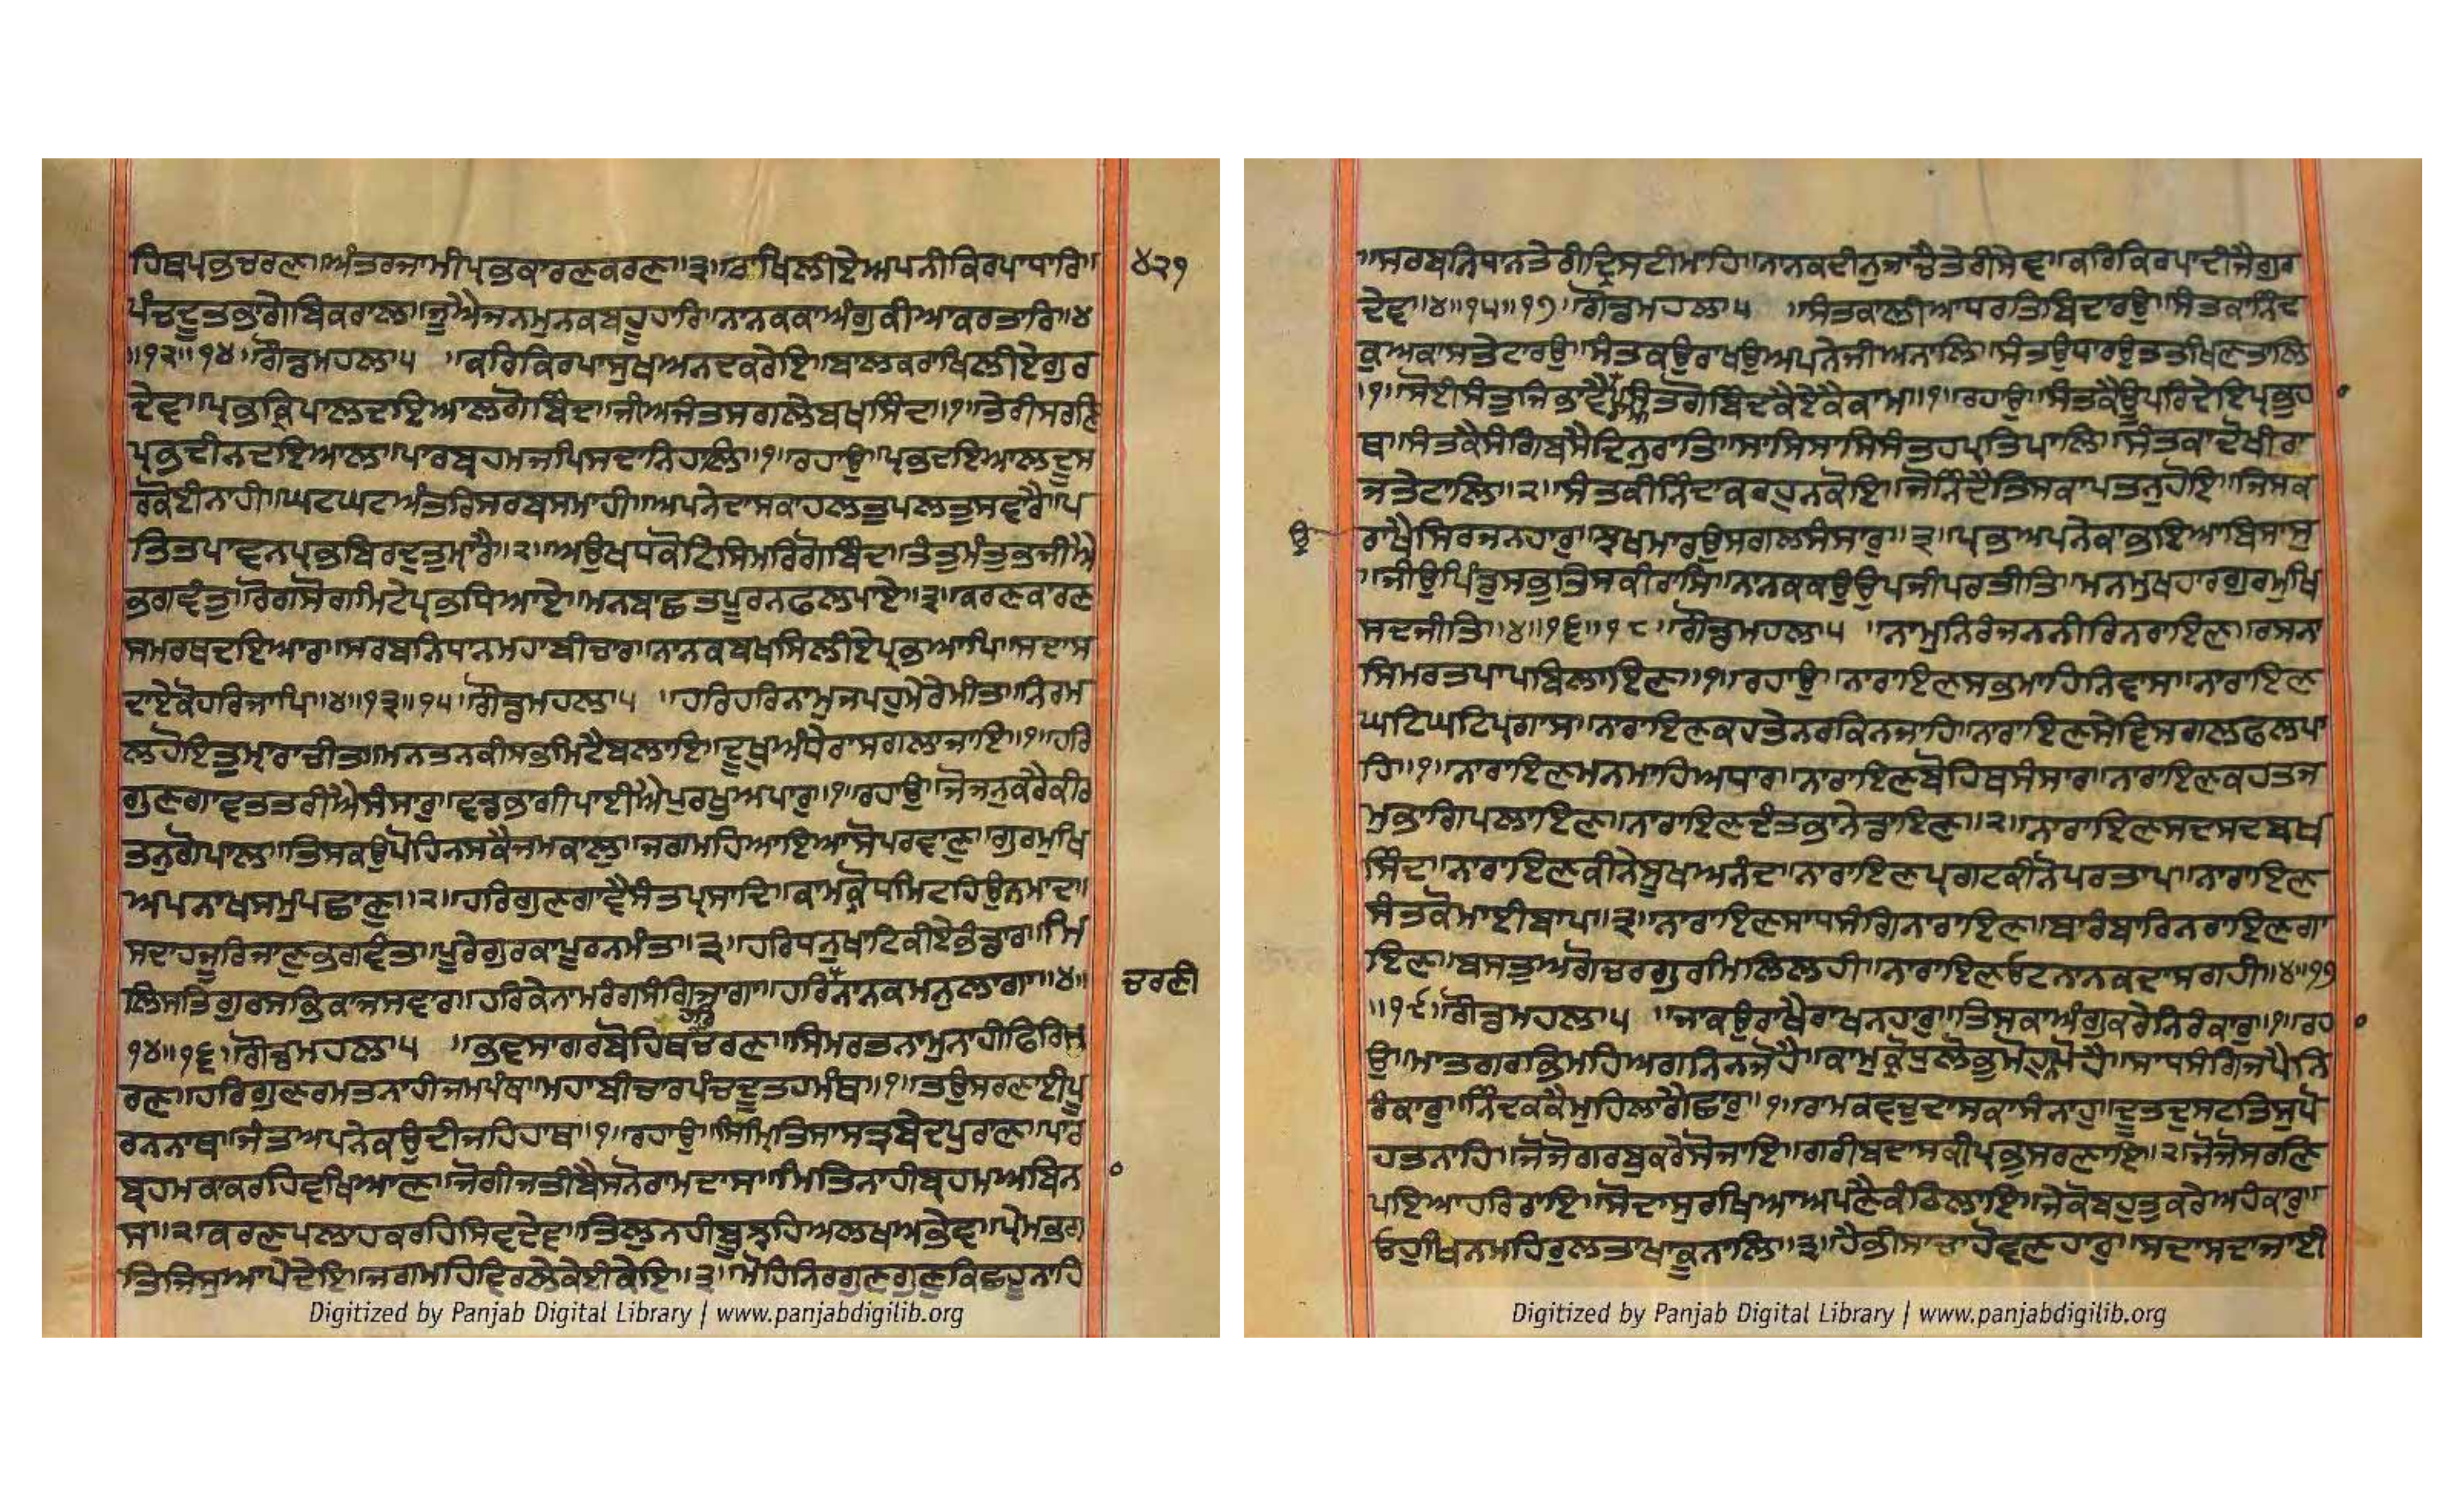 ਹਿਬਪ੍ਰਭਚਰਣ॥ਅੰਤਰਜਾਮੀਪ੍ਰਭਕਾਰਣਕਰਣ॥੩॥ਰਾਖਿਲੀਏਅਪਨੀਕਿਰਪਾਧਾਰਿ॥
੪੨੧
ਪੰਚਦੂਤਭਾਗੇਬਿਕਰਾਲ॥ਜੂਐਜਨਮੁਨਕਬਹੂਹਾਰਿ॥ਨਾਨਕਕਾਅੰਗੁਕੀਆਕਰਤਾਰਿ॥੪
॥੧੨॥੧੪॥ਗੋਂਡਮਹਲਾ੫ ॥ਕਰਿਕਿਰਪਾਸੁਖਅਨਦਕਰੇਇ॥ਬਾਲਕਰਾਖਿਲੀਏਗੁਰ
ਦੇਵਿ॥ਪ੍ਰਭਕ੍ਰਿਪਾਲਦਇਆਲਗੋਬਿੰਦ॥ਜੀਅਜੰਤਸਗਲੇਬਖਸਿੰਦ॥੧॥ਤੇਰੀਸਰਣਿ
ਪ੍ਰਭਦੀਨਦਇਆਲ॥ਪਾਰਬ੍ਰਹਮਜਪਿਸਦਾਨਿਹਾਲਿ॥੧॥ਰਹਾਉ॥ਪ੍ਰਭਦਇਆਲਦੂਸ
ਰਕੋਈਨਾਹੀ॥ਘਟਘਟਅੰਤਰਿਸਰਬਸਮਾਹੀ॥ਅਪਨੇਦਾਸਕਾਹਲਤੁਪਲਤੁਸਵਾਰੈ॥ਪ
ਤਿਤਪਾਵਨਪ੍ਰਭਬਿਰਦੁਤੁਮ੍ਹਾਰੈ॥੨॥ਅਉਖਧਕੋਟਿਸਿਮਰਿਗੋਬਿੰਦ॥ਤੰਤੁਮੰਤੁਭਜੀਐ
ਭਗਵੰਤੁ॥ਰੋਗਸੋਗਮਿਟੇਪ੍ਰਭਧਿਆਏ॥ਮਨਬਾਛਤਪੂਰਨਫਲਪਾਏ॥੩॥ਕਰਣਕਾਰਣ
ਸਮਰਥਦਇਆਰ॥ਸਰਬਨਿਧਾਨਮਹਾਬੀਚਾਰ॥ਨਾਨਕਬਖਸਿਲੀਏਪ੍ਰਭਆਪਿ॥ਸਦਾਸ
ਦਾਏਕੋਹਰਿਜਾਪਿ॥੪॥੧੩॥੧੫॥ਗੋਂਡਮਹਲਾ੫ ॥ਹਰਿਹਰਿਨਾਮੁਜਪਹੁਮੇਰੇਮੀਤ॥ਨਿਰਮ
ਲਹੋਇਤੁਮ੍ਹਾਰਾਚੀਤ॥ਮਨਤਨਕੀਸਭਮਿਟੈਬਲਾਇ॥ਦੂਖੁਅੰਧੇਰਾਸਗਲਾਜਾਇ॥੧॥ਹਰਿ
ਗੁਣਗਾਵਤਤਰੀਐਸੰਸਾਰੁ॥ਵਡਭਾਗੀਪਾਈਐਪੁਰਖੁਅਪਾਰੁ॥੧॥ਰਹਾਉ॥ਜੋਜਨੁਕਰੈਕੀਰ
ਤਨੁਗੋਪਾਲ॥ਤਿਸਕਉਪੋਹਿਨਸਕੈਜਮਕਾਲੁ॥ਜਗਮਹਿਆਇਆਸੋਪਰਵਾਣੁ॥ਗੁਰਮੁਖਿ
ਅਪਨਾਖਸਮੁਪਛਾਣੁ॥੨॥ਹਰਿਗੁਣਗਾਵੈਸੰਤਪ੍ਰਸਾਦਿ॥ਕਾਮਕ੍ਰੋਧਮਿਟਹਿਉਨਮਾਦ॥
ਸਦਾਹਜੂਰਿਜਾਣਭਗਵੰਤ॥ਪੂਰੇਗੁਰਕਾਪੂਰਨਮੰਤ॥੩॥ਹਰਿਧਨੁਖਾਟਿਕੀਏਭੰਡਾਰ॥ਮਿ
ਲਿਸਤਿਗੁਰਸਭਿਕਾਜਸਵਾਰ॥ਹਰਿਕੇਨਾਮਰੰਗਸੰਗਿਜਾਗਾ॥ਹਰਿਨਾਨਕਮਨੁਲਾਗਾ॥੪॥
ਚਰਣੀ
੧੪॥੧੬॥ਗੋਂਡਮਹਲਾ੫ ॥ਭਵਸਾਗਰਬੋਹਿਥਚਰਣ॥ਸਿਮਰਤਨਾਮੁਨਾਹੀਫਿਰਿਮ
ਰਣ॥ਹਰਿਗੁਣਰਮਤਨਾਹੀਜਮਪੰਥ॥ਮਹਾਬੀਚਾਰਪੰਚਦੂਤਹਮੰਥ॥੧॥ਤਉਸਰਣਾਈਪੂ
ਰਨਨਾਥ॥ਜੰਤਅਪਨੇਕਉਦੀਜਹਿਹਾਥ॥੧॥ਰਹਾਉ॥ਸਿਮ੍ਰਿਤਿਸਾਸਤ੍ਰਬੇਦਪੁਰਾਣ॥ਪਾਰ
ਬ੍ਰਹਮਕਾਕਰਹਿਵਖਿਆਣ॥ਜੋਗੀਜਤੀਬੈਸਨੋਰਾਮਦਾਸ॥ਮਿਤਿਨਾਹੀਬ੍ਰਹਮਅਬਿਨਾ
ਸ॥੨॥ਕਰਣਪਲਾਹਕਰਹਿਸਿਵਦੇਵ॥ਤਿਲੁਨਹੀਬੂਝਹਿਅਲਖਅਭੇਵ॥ਪ੍ਰੇਮਭਗ
ਤਿਜਿਸੁਆਪੇਦੇਇ॥ਜਗਮਹਿਵਿਰਲੇਕੇਈਕੇਇ॥੩॥ਮੋਹਿਨਿਰਗੁਣਗੁਣੁਕਿਛਹੂਨਾਹਿ
Digitized by Panjab Digital Library | www.panjabdigilib.org
॥ਸਰਬਨਿਧਾਨਤੇਰੀਦ੍ਰਿਸਟੀਮਾਹਿ॥ਨਾਨਕਦੀਨੁਜਾਚੈਤੇਰੀਸੇਵ॥ਕਰਿਕਿਰਪਾਦੀਜੈਗੁਰ
ਦੇਵ॥੪॥੧੫॥੧੭॥ਗੋਂਡਮਹਲਾ੫ ॥ਸੰਤਕਾਲੀਆਧਰਤਿਬਿਦਾਰਉ॥ਸੰਤਕਾਨਿੰਦ
ਕੁਅਕਾਸਤੇਟਾਰਉ॥ਸੰਤਕਉਰਾਖਉਅਪਨੇਜੀਅਨਾਲਿ॥ਸੰਤਉਧਾਰਉਤਤਖਿਣਤਾਲਿ
॥੧॥ਸੋਈਸੰਤੁਜਿਭਾਵੈਰਾਮ॥ਸੰਤਗੋਬਿੰਦਕੈਏਕੈਕਾਮ॥੧॥ਰਹਾਉ॥ਸੰਤਕੈਊਪਰਿਦੇਇਪ੍ਰਭੁਹਾ
ਥ॥ਸੰਤਕੈਸੰਗਿਬਸੈਦਿਨੁਰਾਤਿ॥ਸਾਸਿਸਾਸਿਸੰਤਹਪ੍ਰਤਿਪਾਲਿ॥ਸੰਤਕਾਦੋਖੀਰਾ
ਜਤੇਟਾਲਿ॥੨॥ਸੰਤਕੀਨਿੰਦਾਕਰਹੁਨਕੋਇ॥ਜੋਨਿੰਦੈਤਿਸਕਾਪਤਨੁਹੋਇ॥ਜਿਸਕ
ਉ
ਰਾਖੈਸਿਰਜਨਹਾਰੁ॥ਝਖਮਾਰਉਸਗਲਸੰਸਾਰੁ॥੩॥ਪ੍ਰਭਅਪਨੇਕਾਭਇਆਬਿਸਾਸੁ
॥ਜੀਉਪਿੰਡੁਸਭੁਤਿਸਕੀਰਾਸਿ॥ਨਾਨਕਕਉਉਪਜੀਪਰਤੀਤਿ॥ਮਨਮੁਖਹਾਰਗੁਰਮੁਖਿ
ਸਦਜੀਤਿ॥੪॥੧੬॥੧੮॥ਗੋਂਡਮਹਲਾ੫ ॥ਨਾਮੁਨਿਰੰਜਨਨੀਰਿਨਰਾਇਣ॥ਰਸਨਾ
ਸਿਮਰਤਪਾਪਬਿਲਾਇਣ॥੧॥ਰਹਾਉ॥ਨਾਰਾਇਣਸਭਮਾਹਿਨਿਵਾਸ॥ਨਾਰਾਇਣ
ਘਟਿਘਟਿਪ੍ਰਗਾਸ॥ਨਾਰਾਇਣਕਹਤੇਨਰਕਿਨਜਾਹਿ॥ਨਾਰਾਇਣਸੇਵਿਸਗਲਫਲਪਾ
ਹਿ॥੧॥ਨਾਰਾਇਣਮਨਮਾਹਿਅਧਾਰ॥ਨਾਰਾਇਣਬੋਹਿਥਸੰਸਾਰ॥ਨਾਰਾਇਣਕਹਤਜ
ਮੁਭਾਗਿਪਲਾਇਣ॥ਨਾਰਾਇਣਦੰਤਭਾਨੇਡਾਇਣ॥੨॥ਨਾਰਾਇਣਸਦਸਦਬਖ
ਸਿੰਦ॥ਨਾਰਾਇਣਕੀਨੇਸੂਖਅਨੰਦ॥ਨਾਰਾਇਣਪ੍ਰਗਟਕੀਨੋਪਰਤਾਪ॥ਨਾਰਾਇਣ
ਸੰਤਕੋਮਾਈਬਾਪ॥੩॥ਨਾਰਾਇਣਸਾਧਸੰਗਿਨਰਾਇਣ॥ਬਾਰੰਬਾਰਿਨਰਾਇਣਗਾ
ਇਣ॥ਬਸਤੁਅਗੋਚਰਗੁਰਮਿਲਿਲਹੀ॥ਨਾਰਾਇਣਓਟਨਾਨਕਦਾਸਗਹੀ॥੪॥੧੭
॥੧੯॥ਗੋਂਡਮਹਲਾ੫ ॥ਜਾਕਉਰਾਖੈਰਾਖਨਹਾਰੁ॥ਤਿਸਕਾਅੰਗੁਕਰੇਨਿਰੰਕਾਰੁ॥੧॥ਰਹਾ
ਉ॥ਮਾਤਗਰਭਮਹਿਅਗਨਿਨਜੋਹੈ॥ਕਾਮੁਕ੍ਰੋਧੁਲੋਭੁਮੋਹੁਨਪੋਹੈ॥ਸਾਧਸੰਗਿਜਪੈਨਿ
ਰੰਕਾਰੁ॥ਨਿੰਦਕਕੈਮੁਹਿਲਾਗੈਛਾਰੁ॥੧॥ਰਾਮਕਵਚੁਦਾਸਕਾਸੰਨਾਹੁ॥ਦੂਤਦੁਸਟਤਿਸੁਪੋ
ਹਤਨਾਹਿ॥ਜੋਜੋਗਰਬੁਕਰੇਸੋਜਾਇ॥ਗਰੀਬਦਾਸਕੀਪ੍ਰਭੁਸਰਣਾਇ॥੨॥ਜੋਜੋਸਰਣਿ
ਪਇਆਹਰਿਰਾਇ॥ਸੋਦਾਸੁਰਖਿਆਅਪਣੈਕੰਠਿਲਾਇ॥ਜੇਕੋਬਹੁਤੁਕਰੇਅਹੰਕਾਰੁ॥
ਓਹੁਖਿਨਮਹਿਰੁਲਤਾਖਾਕੂਨਾਲਿ॥੩॥ਹੈਭੀਸਾਚਾਹੋਵਣਹਾਰੁ॥ਸਦਾਸਦਾਜਾਈ
Digitized by Panjab Digital Library | www.panjabdigilib.org